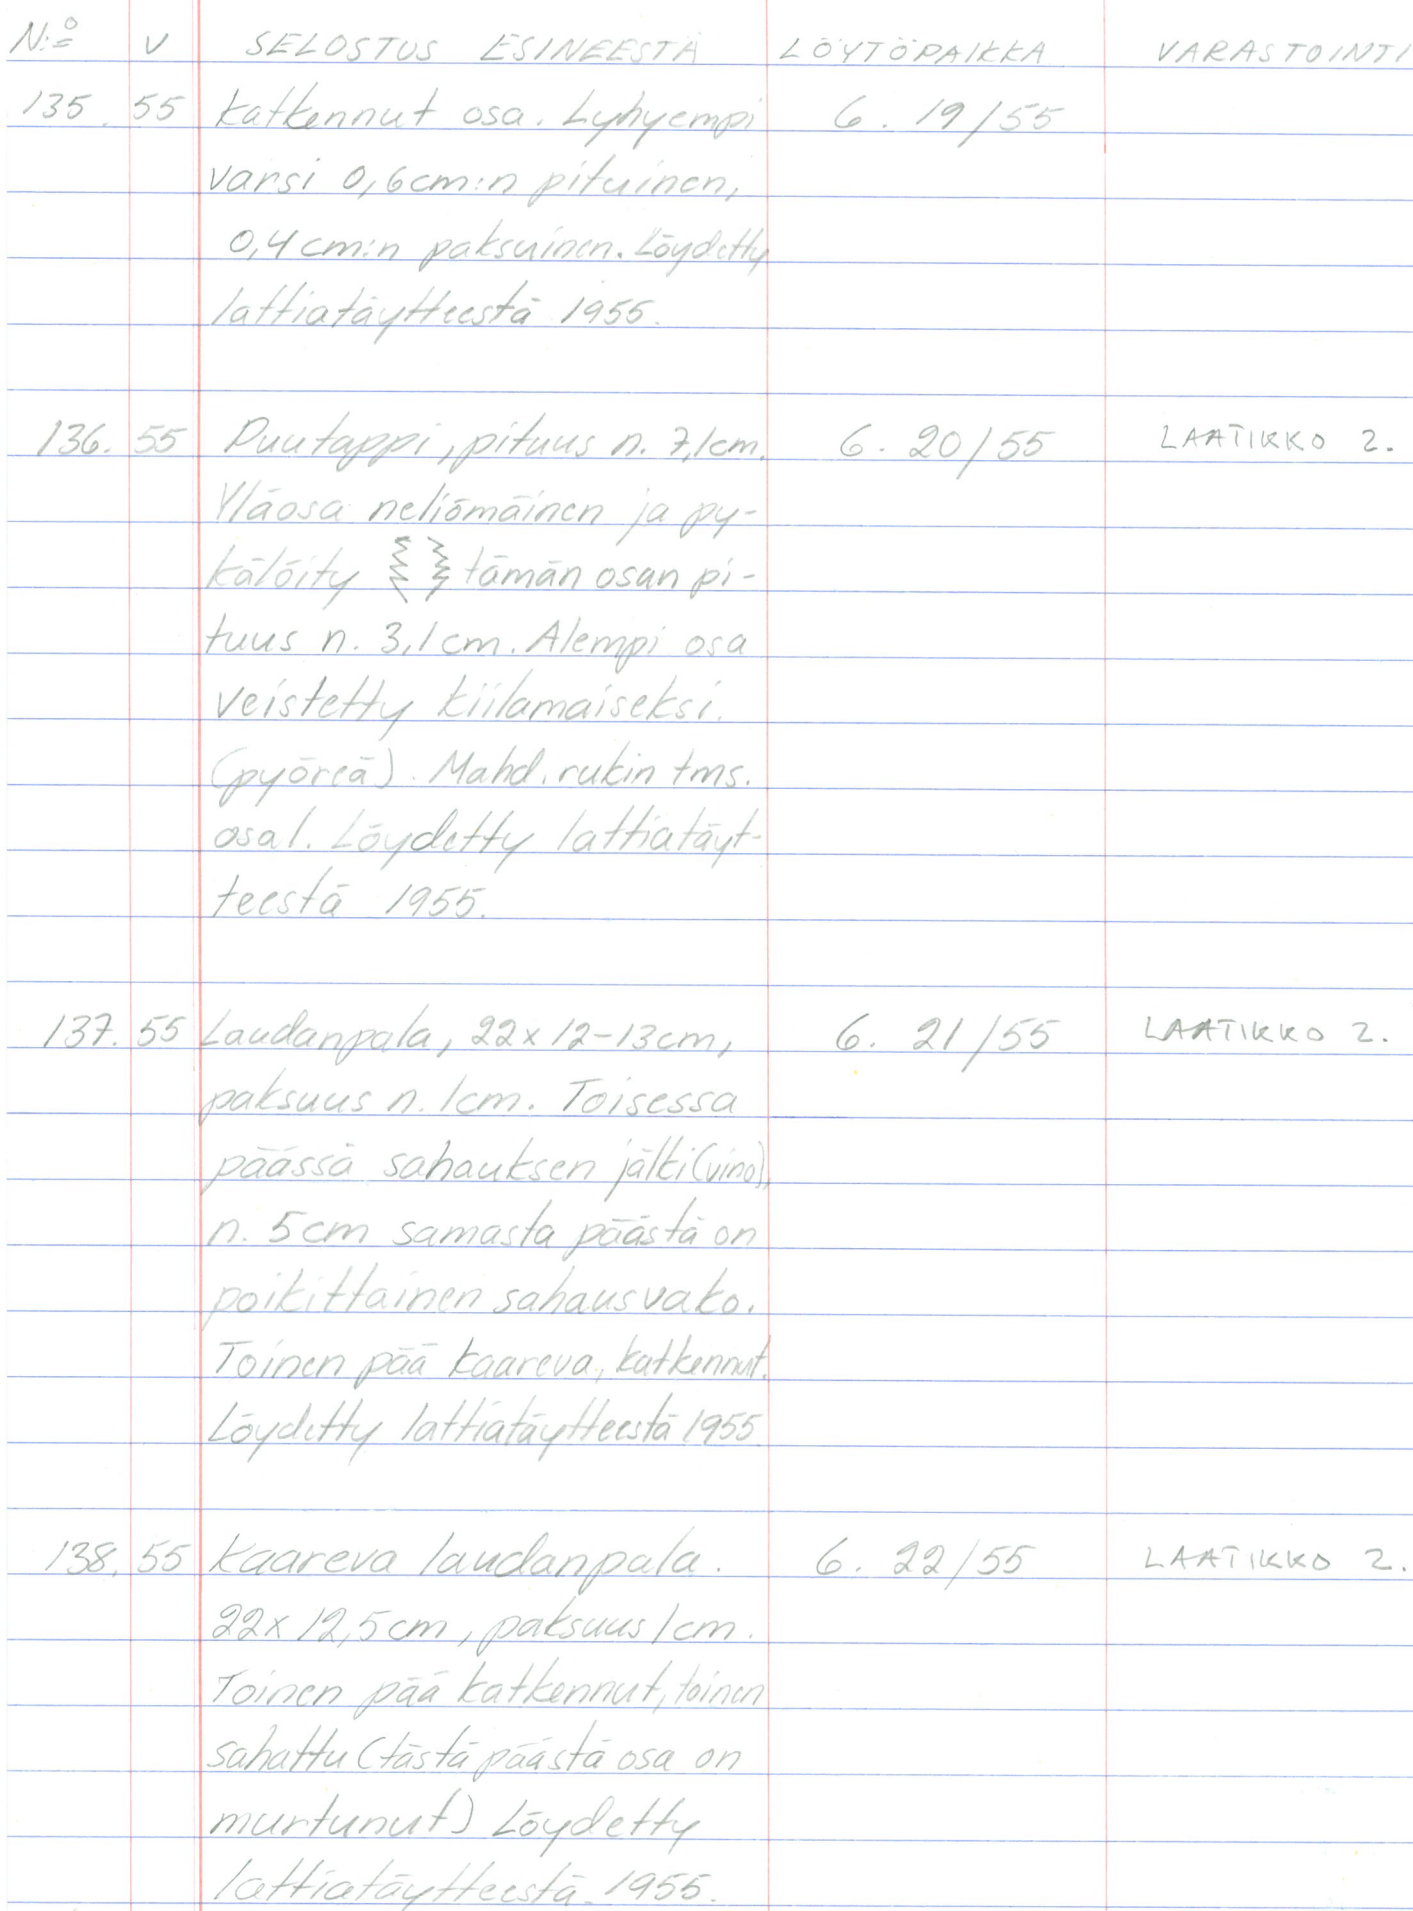 N:o V SELOSTUS ESINEESTÄ LÖYTÖPAIKKA VARASTOINTI
135. 55 katkennut osa. Lyhyempi 6. 19/55
varsi 0,6cm:n pituinen,
0,4cm:n paksuinen. Löydetty
lattiatäytteestä 1955.
136. 55 Puutappi, pituus n. 7,1cm. 6. 20/55 LAATIKKO 2.
Yläosa neliömäinen ja py-
kälöity tämän osan pi-
tuus n. 3,1cm. Alempi osa
veistetty kiilamaiseksi.
(pyöreä). Mahd. rukin tms.
osa1. Löydetty lattiatäyt-
teestä 1955.
137. 55 Laudanpala, 22x12-13cm, 6. 21/55 LAATIKKO 2.
paksuus n. 1cm. Toisessa
päässä sahauksen jälki (vino),
n. 5cm samasta päästä on
poikittainen sahausvako.
Toinen pää kaareva, katkennut.
Löydetty lattiatäytteestä 1955
138. 55 Kaareva laudanpala. 6. 22/55 LAATIKKO 2.
22x12,5cm, paksuus 1cm.
Toinen pää katkennut, toinen
sahattu (tästä päästä osa on
murtunut) Löydetty
lattiatäytteestä 1955.